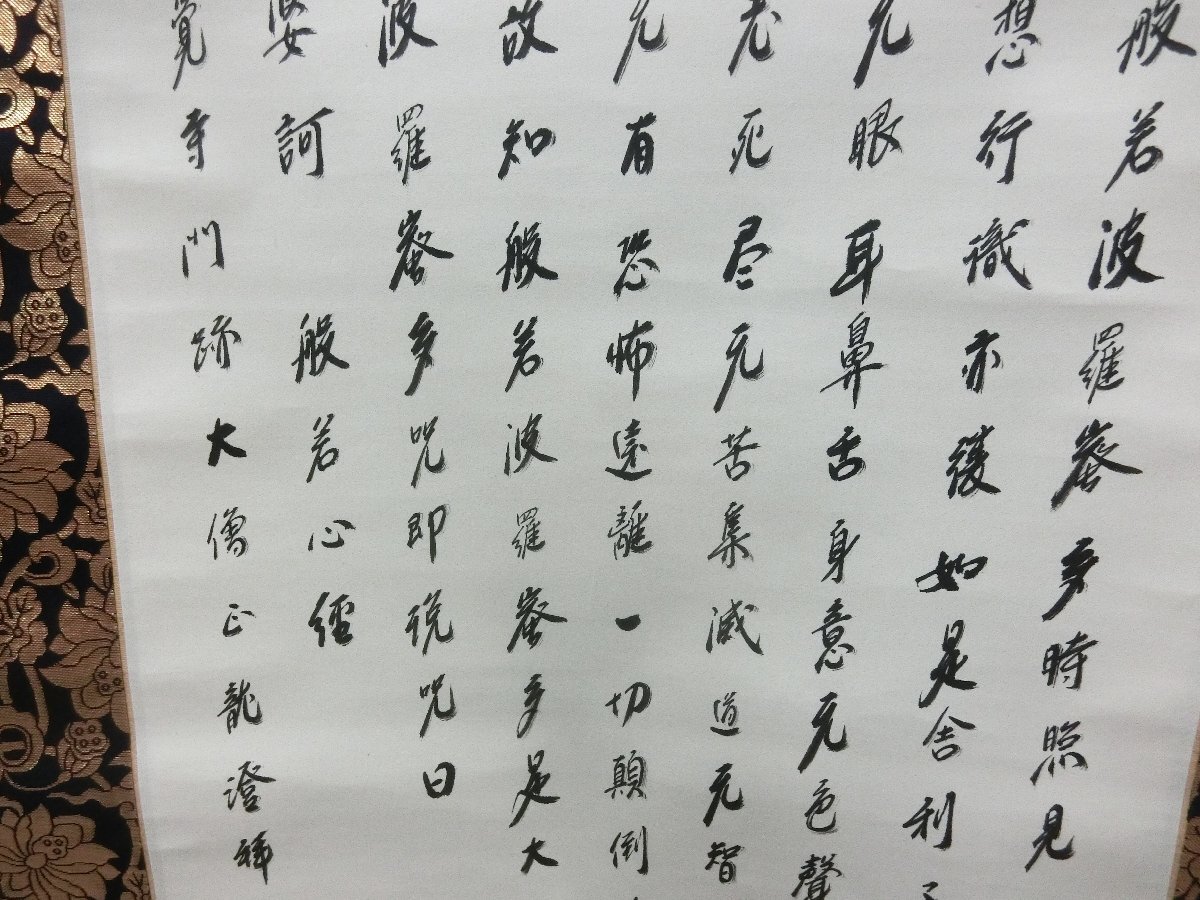 般若波羅蜜多時照見
想行識亦復如是舎利子
无眼耳鼻舌身意无色聲
老死尽无苦集滅道无智
无有恐怖遠離一切顛倒
故知般若波羅蜜多是大
波羅蜜多呪即説呪曰
婆訶 般若心経
覚寺門跡大僧正龍澄禅